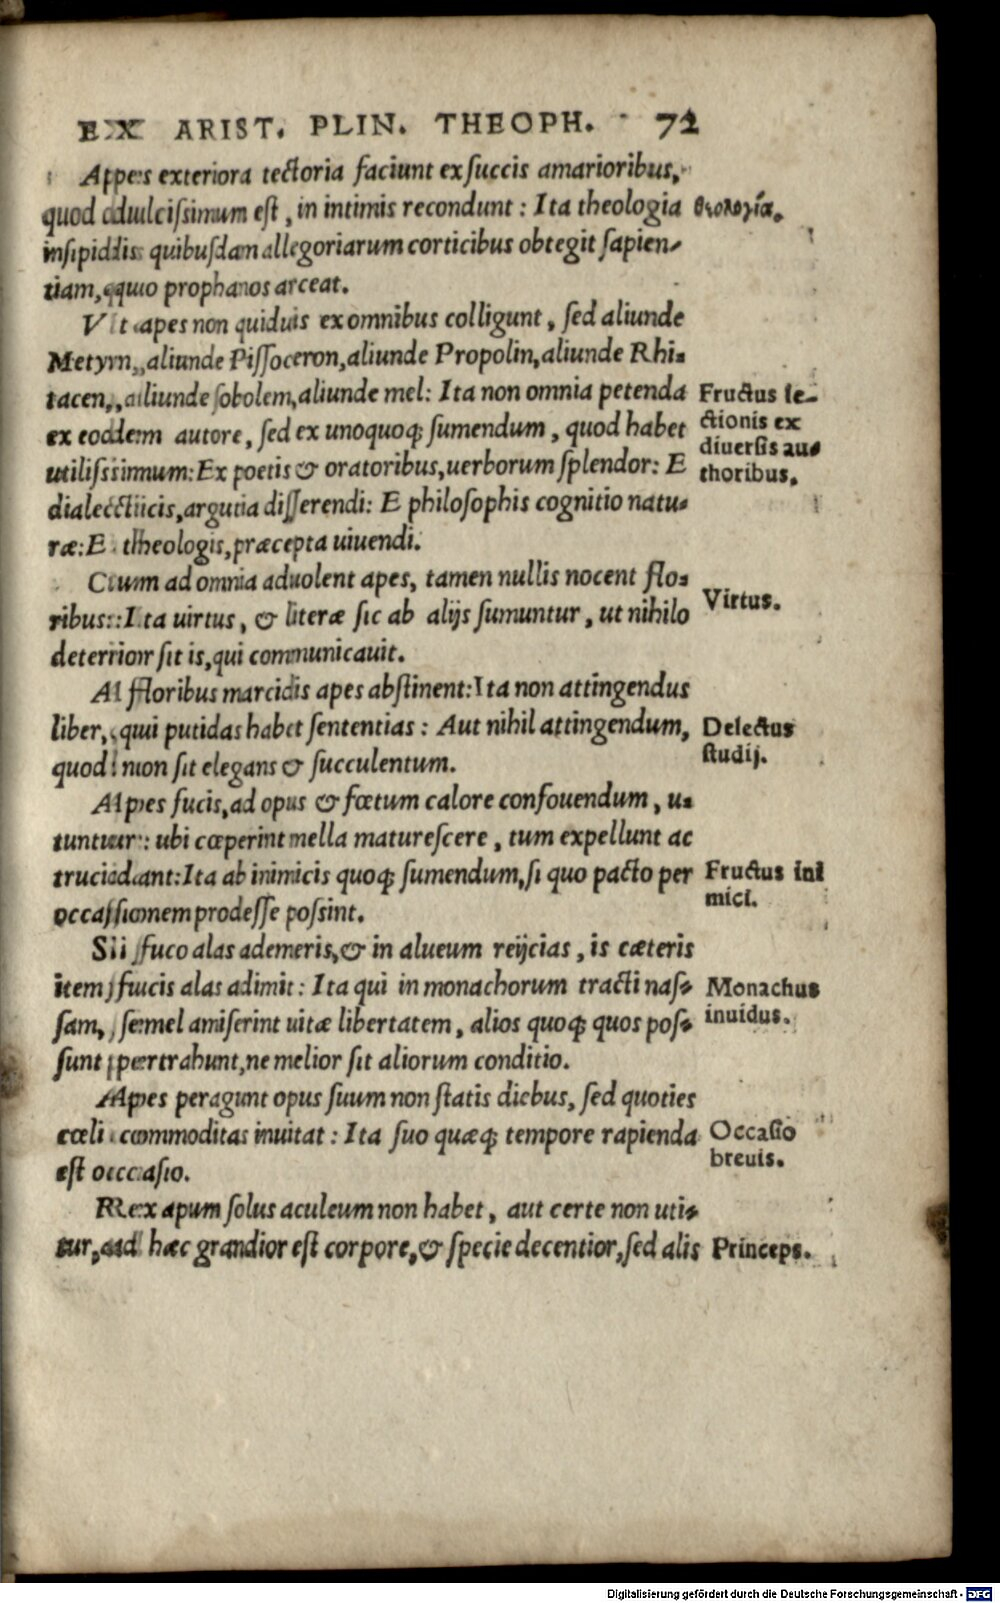 EX ARIST. PLIN. THEOPH. 72
Apes exteriora tectoria faciunt ex succis amarioribus,
quod dulcissimum est, in intimis recondunt: Ita theologia
insipidis quibusdam allegoriarum corticibus obtegit sapien-
tiam, quo prophanos arceat.
Vt apes non quiduis ex omnibus colligunt, sed aliunde
Metyrn, aliunde Pissoceron, aliunde Propolin, aliunde Rhi-
tacen, aliunde sobolem, aliunde mel: Ita non omnia petenda
ex eodem autore, sed ex unoquoq; sumendum, quod habet
utilissimum: Ex poetis & oratoribus, uerborum splendor: E
dialecticis, argutia disserendi: E philosophis cognitio natu-
ræ: E theologis, præcepta uiuendi.
Cum ad omnia aduolent apes, tamen nullis nocent flo-
ribus: Ita uirtus, & literæ sic ab alijs sumuntur, ut nihilo
deterior sit is, qui communicauit.
A floribus marcidis apes abstinent: Ita non attingendus
liber, qui putidas habet sententias: Aut nihil attingendum,
quod non sit elegans & succulentum.
Apes fucis, ad opus & fœtum calore confouendum, u-
tuntur: ubi cœperint mella maturescere, tum expellunt ac
trucidant: Ita ab inimicis quoq; sumendum, si quo pacto per
occasionem prodesse possint.
Si fuco alas ademeris, & in alueum reijcias, is cæteris
item fucis alas adimit: Ita qui in monachorum tracti nas-
sam, semel amiserint uitæ libertatem, alios quoq; quos pos-
sunt pertrahunt, ne melior sit aliorum conditio.
Apes peragunt opus suum non statis diebus, sed quoties
cœli commoditas inuitat: Ita suo quæq; tempore rapienda
est occasio.
Rex apum solus aculeum non habet, aut certe non uti-
tur, ad hæc grandior est corpore, & specie decentior, sed alis
θεολογία.
Fructus le-
ctionis ex
diuersis au-
thoribus.
Virtus.
Delectus
studij.
Fructus ini
mici.
Monachus
inuidus.
Occasio
breuis.
Princeps.
Digitalisierung gefördert durch die Deutsche Forschungsgemeinschaft - DFG